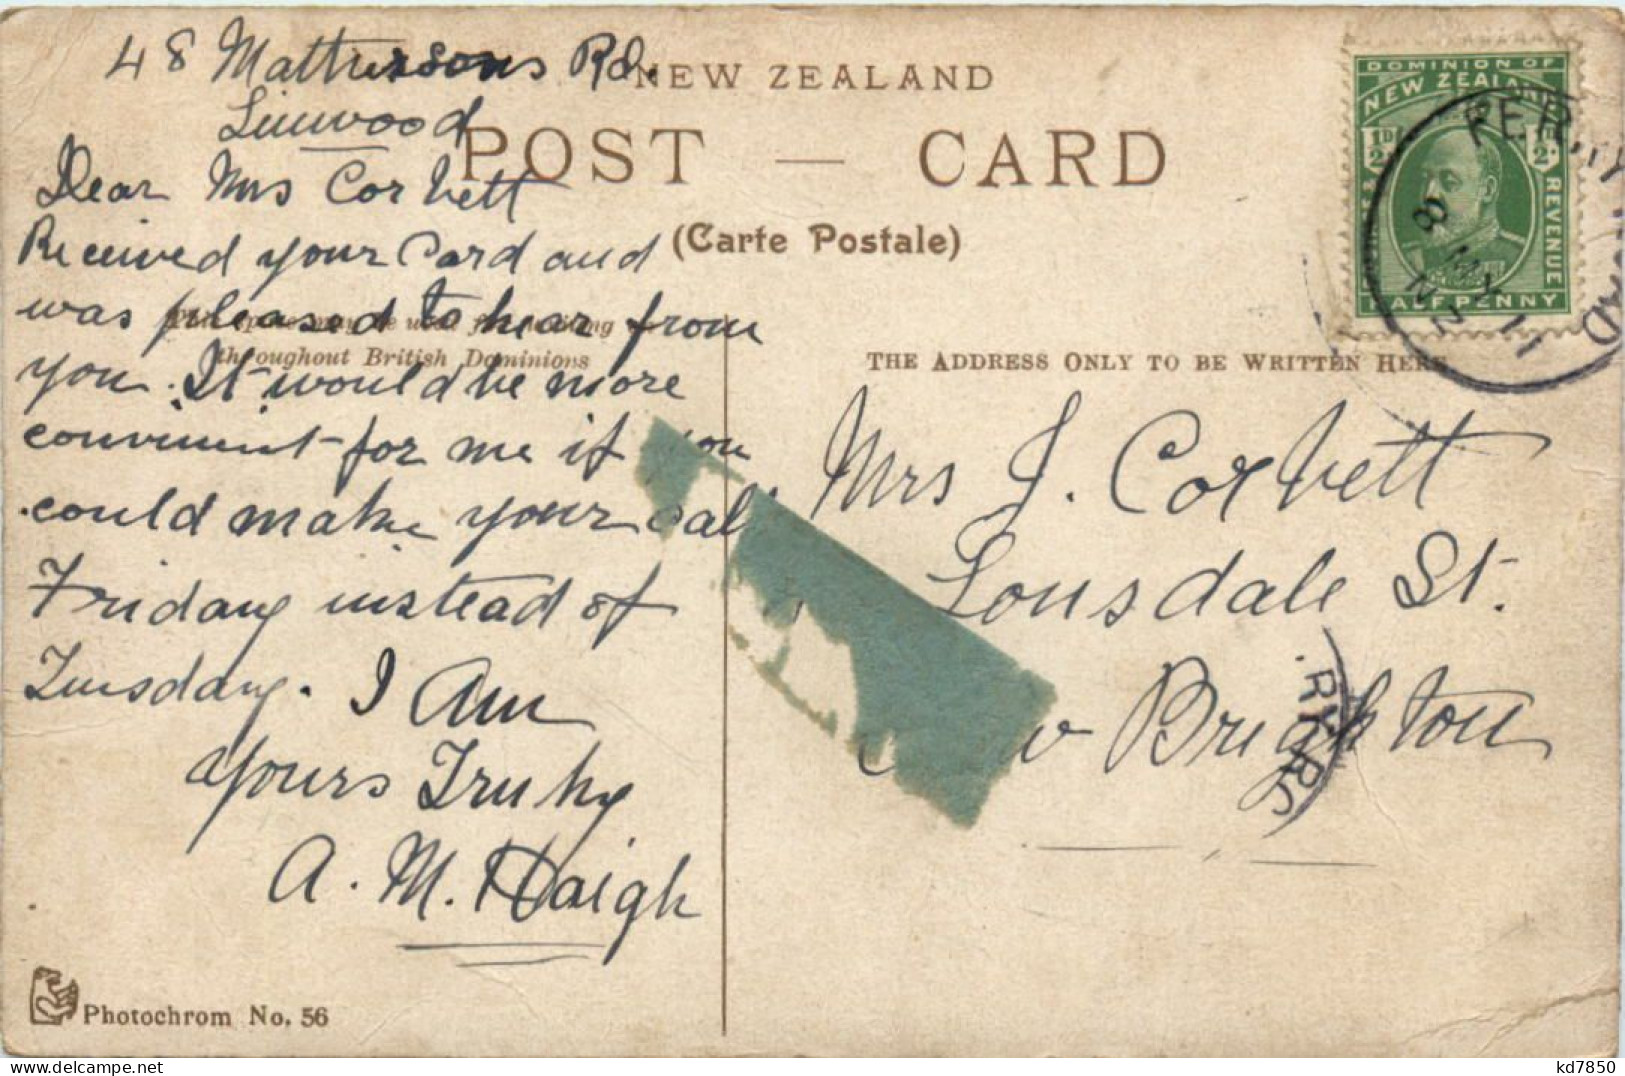 48 Mathesons Rd.
Linwood
Dear Mrs Corbett
Received your Card and
was pleased to hear from
you. It would be more
convinient for me if you
could make your call
Friday instead of
Tuesday. I Am
Yours Truly
A. M. Haigh
Photochrom No. 56
NEW ZEALAND
POST — CARD
(Carte Postale)
throughout British Dominions
THE ADDRESS ONLY TO BE WRITTEN HERE
DOMINION OF
NEW ZEALAND
1/2D
REVENUE
HALFPENNY
FERRY ROAD
8 MY 11
N Z
Mrs J. Corbett
Lonsdale St.
w Brighton
kd7850